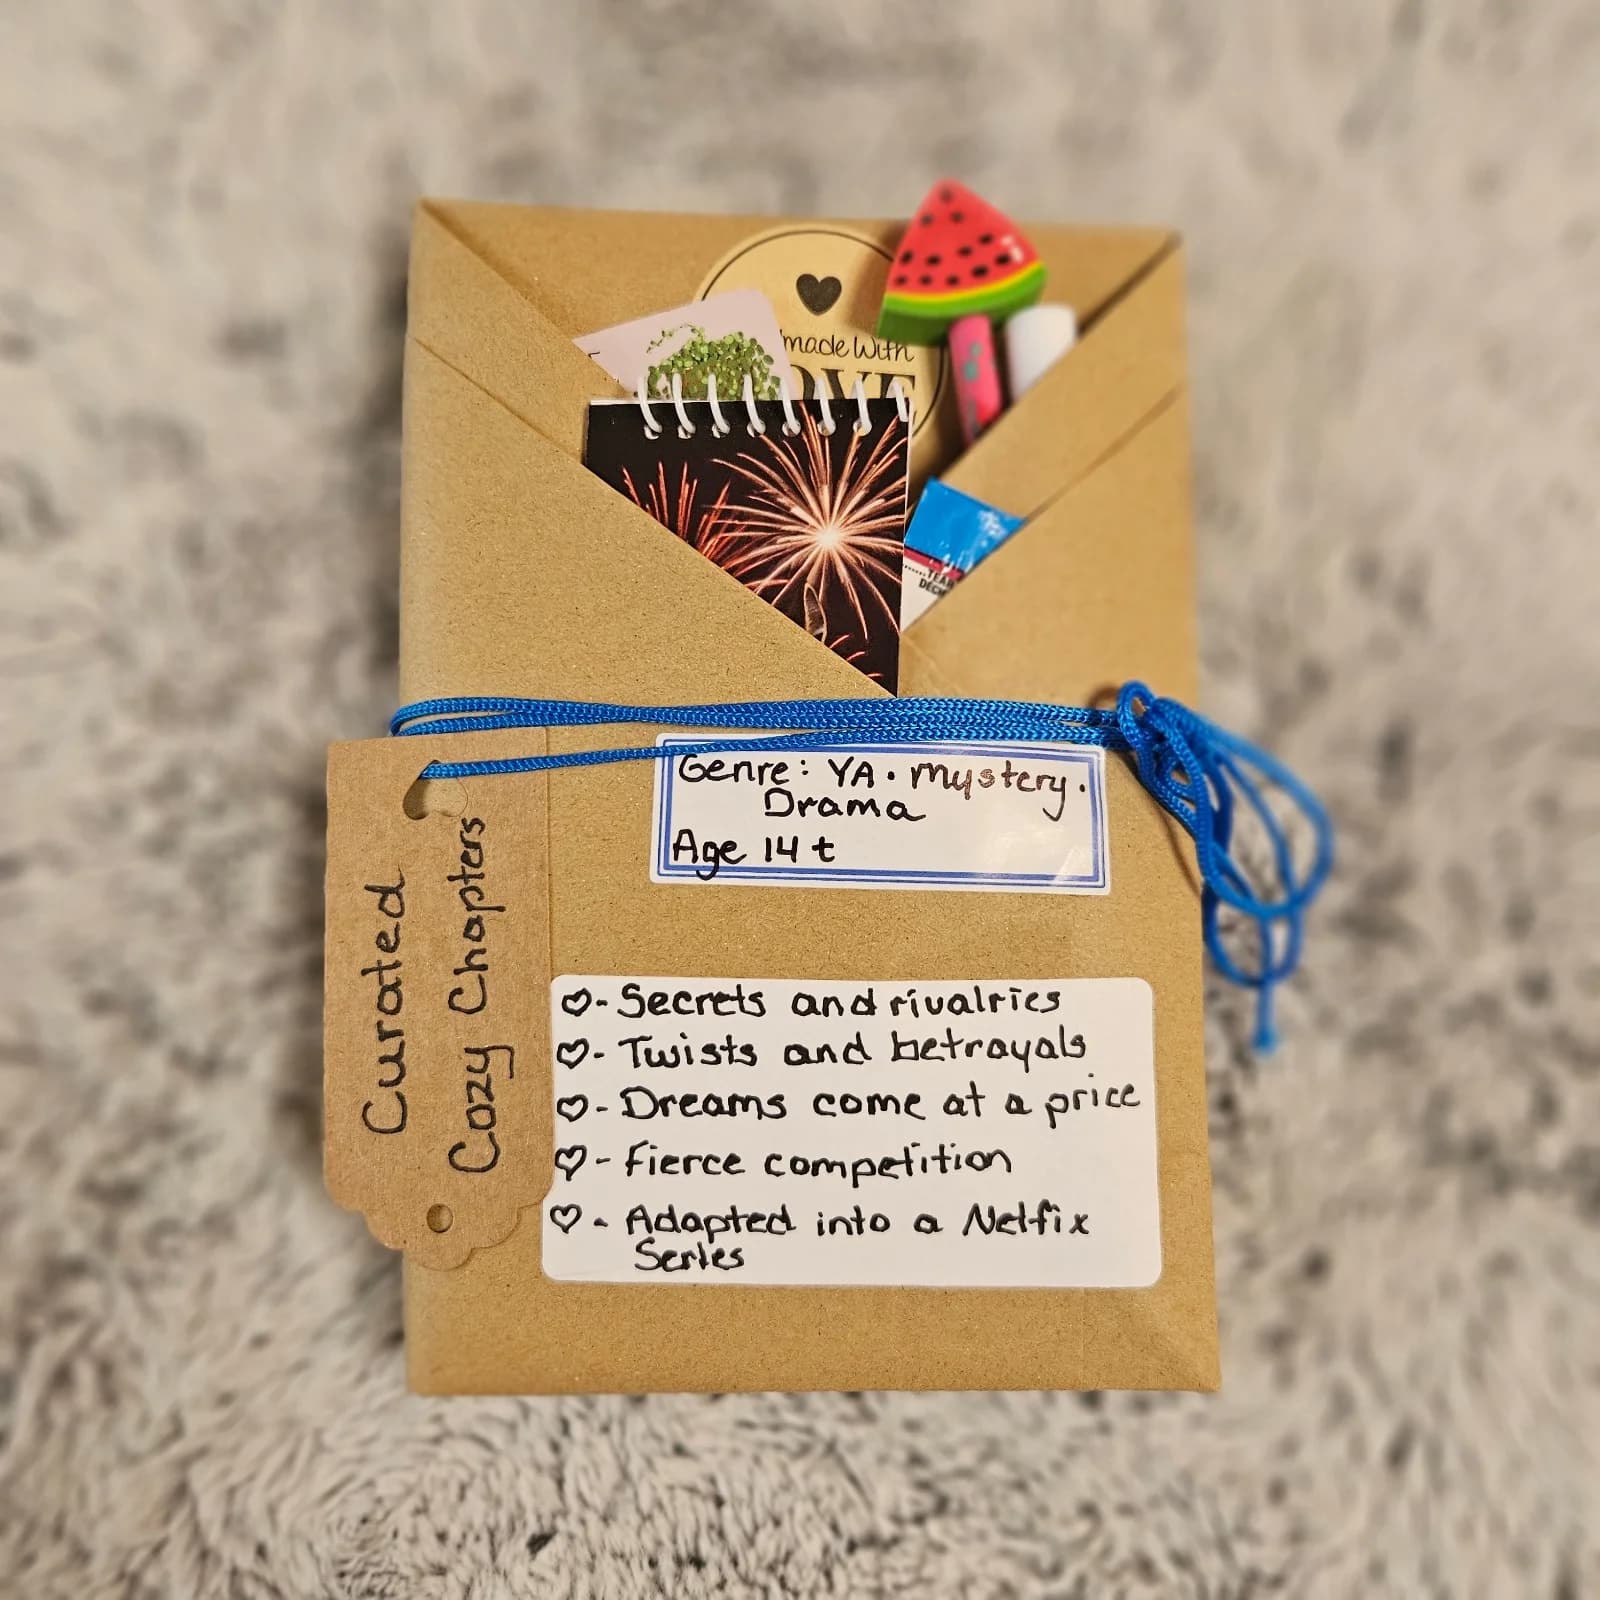 made with
OVE
TEAR
DÉCH
Genre: YA. Mystery.
Drama
Age 14 +
Curated
Cozy Chapters
♡- Secrets and rivalries
♡- Twists and betrayals
♡- Dreams come at a price
♡- Fierce competition
♡- Adapted into a Netfix
Series